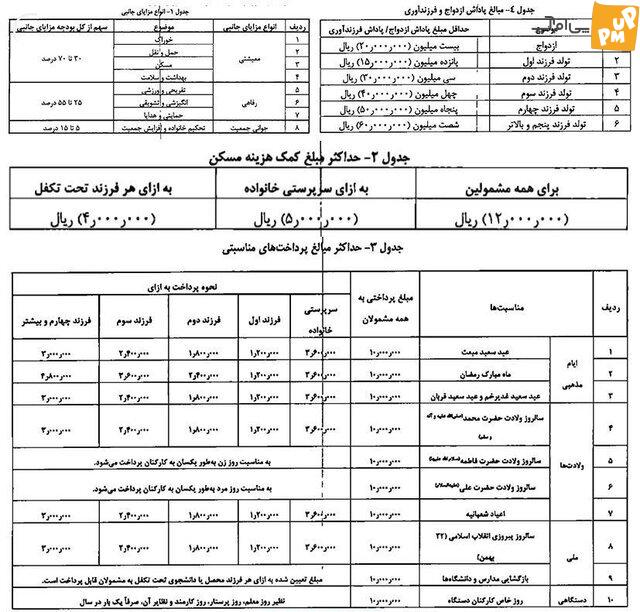 جدول ۴- مبالغ پاداش ازدواج و فرزندآوری
حداقل مبلغ پاداش ازدواج/ پاداش فرزندآوری
ازدواج بیست میلیون (۲۰٫۰۰۰٫۰۰۰) ریال
۲ تولد فرزند اول پانزده میلیون (۱۵٫۰۰۰٫۰۰۰) ریال
۳ تولد فرزند دوم سی میلیون (۳۰٫۰۰۰٫۰۰۰) ریال
۴ تولد فرزند سوم چهل میلیون (۴۰٫۰۰۰٫۰۰۰) ریال
۵ تولد فرزند چهارم پنجاه میلیون (۵۰٫۰۰۰٫۰۰۰) ریال
۶ تولد فرزند پنجم و بالاتر شصت میلیون (۶۰٫۰۰۰٫۰۰۰) ریال
UP
PM
جدول ۱- انواع مزایای جانبی
ردیف موضوع انواع مزایای جانبی سهم از کل بودجه مزایای جانبی
۱ خوراک
۲ حمل و نقل
۳ مسکن
۴ بهداشت و سلامت
معیشتی ۳۰ تا ۷۰ درصد
۵ تفریحی و ورزشی
۶ انگیزشی و تشویقی
۷ حمایتی و هدایا
رفاهی ۲۵ تا ۵۵ درصد
۸ تحکیم خانواده و افزایش جمعیت جوانی جمعیت ۵ تا ۱۵ درصد
جدول ۲- حداکثر مبلغ کمک هزینه مسکن
برای همه مشمولین به ازای سرپرستی خانواده به ازای هر فرزند تحت تکفل
(۱۲٫۰۰۰٫۰۰۰) ریال (۵٫۰۰۰٫۰۰۰) ریال (۴٫۰۰۰٫۰۰۰) ریال
جدول ۳- حداکثر مبالغ پرداخت‌های مناسبتی
ردیف مناسبت‌ها مبلغ پرداختی به همه مشمولان نحوه پرداخت به ازای
سرپرستی خانواده فرزند اول فرزند دوم فرزند سوم فرزند چهارم و بیشتر
ایام مذهبی
۱ عید سعید مبعث ۱۰٫۰۰۰٫۰۰۰ ۳٫۶۰۰٫۰۰۰ ۱٫۲۰۰٫۰۰۰ ۱٫۸۰۰٫۰۰۰ ۲٫۴۰۰٫۰۰۰ ۳٫۰۰۰٫۰۰۰
۲ ماه مبارک رمضان ۱۰٫۰۰۰٫۰۰۰ ۳٫۶۰۰٫۰۰۰ ۱٫۲۰۰٫۰۰۰ ۲٫۴۰۰٫۰۰۰ ۳٫۶۰۰٫۰۰۰ ۴٫۸۰۰٫۰۰۰
۳ عید سعید غدیرخم و عید سعید قربان ۱۰٫۰۰۰٫۰۰۰ ۳٫۶۰۰٫۰۰۰ ۱٫۲۰۰٫۰۰۰ ۱٫۸۰۰٫۰۰۰ ۲٫۴۰۰٫۰۰۰ ۳٫۰۰۰٫۰۰۰
ولادت‌ها
۴ سالروز ولادت حضرت محمد (صلی‌الله علیه و آله و سلم) ۱۰٫۰۰۰٫۰۰۰ ۳٫۶۰۰٫۰۰۰ ۱٫۲۰۰٫۰۰۰ ۱٫۸۰۰٫۰۰۰ ۲٫۴۰۰٫۰۰۰ ۳٫۰۰۰٫۰۰۰
۵ سالروز ولادت حضرت فاطمه (سلام‌الله علیها) ۱۰٫۰۰۰٫۰۰۰ به مناسبت روز زن به‌طور یکسان به کارکنان پرداخت می‌شود.
۶ سالروز ولادت حضرت علی (علیه‌السلام) ۱۰٫۰۰۰٫۰۰۰ به مناسبت روز مرد به‌طور یکسان به کارکنان پرداخت می‌شود.
۷ اعیاد شعبانیه ۱۰٫۰۰۰٫۰۰۰ ۳٫۶۰۰٫۰۰۰ ۱٫۲۰۰٫۰۰۰ ۱٫۸۰۰٫۰۰۰ ۲٫۴۰۰٫۰۰۰ ۳٫۰۰۰٫۰۰۰
ملی
۸ سالروز پیروزی انقلاب اسلامی (۲۲ بهمن) ۱۰٫۰۰۰٫۰۰۰ ۳٫۶۰۰٫۰۰۰ ۱٫۲۰۰٫۰۰۰ ۱٫۸۰۰٫۰۰۰ ۲٫۴۰۰٫۰۰۰ ۳٫۰۰۰٫۰۰۰
۹ بازگشایی مدارس و دانشگاه‌ها ۱۰٫۰۰۰٫۰۰۰ مبلغ تعیین شده به ازای هر فرزند محصل یا دانشجوی تحت تکفل به مشمولان قابل پرداخت است.
دستگاهی
۱۰ روز خاص کارکنان دستگاه ۱۰٫۰۰۰٫۰۰۰ نظیر روز معلم، روز پرستار، روز کارمند و نظایر آن، صرفاً یک بار در سال